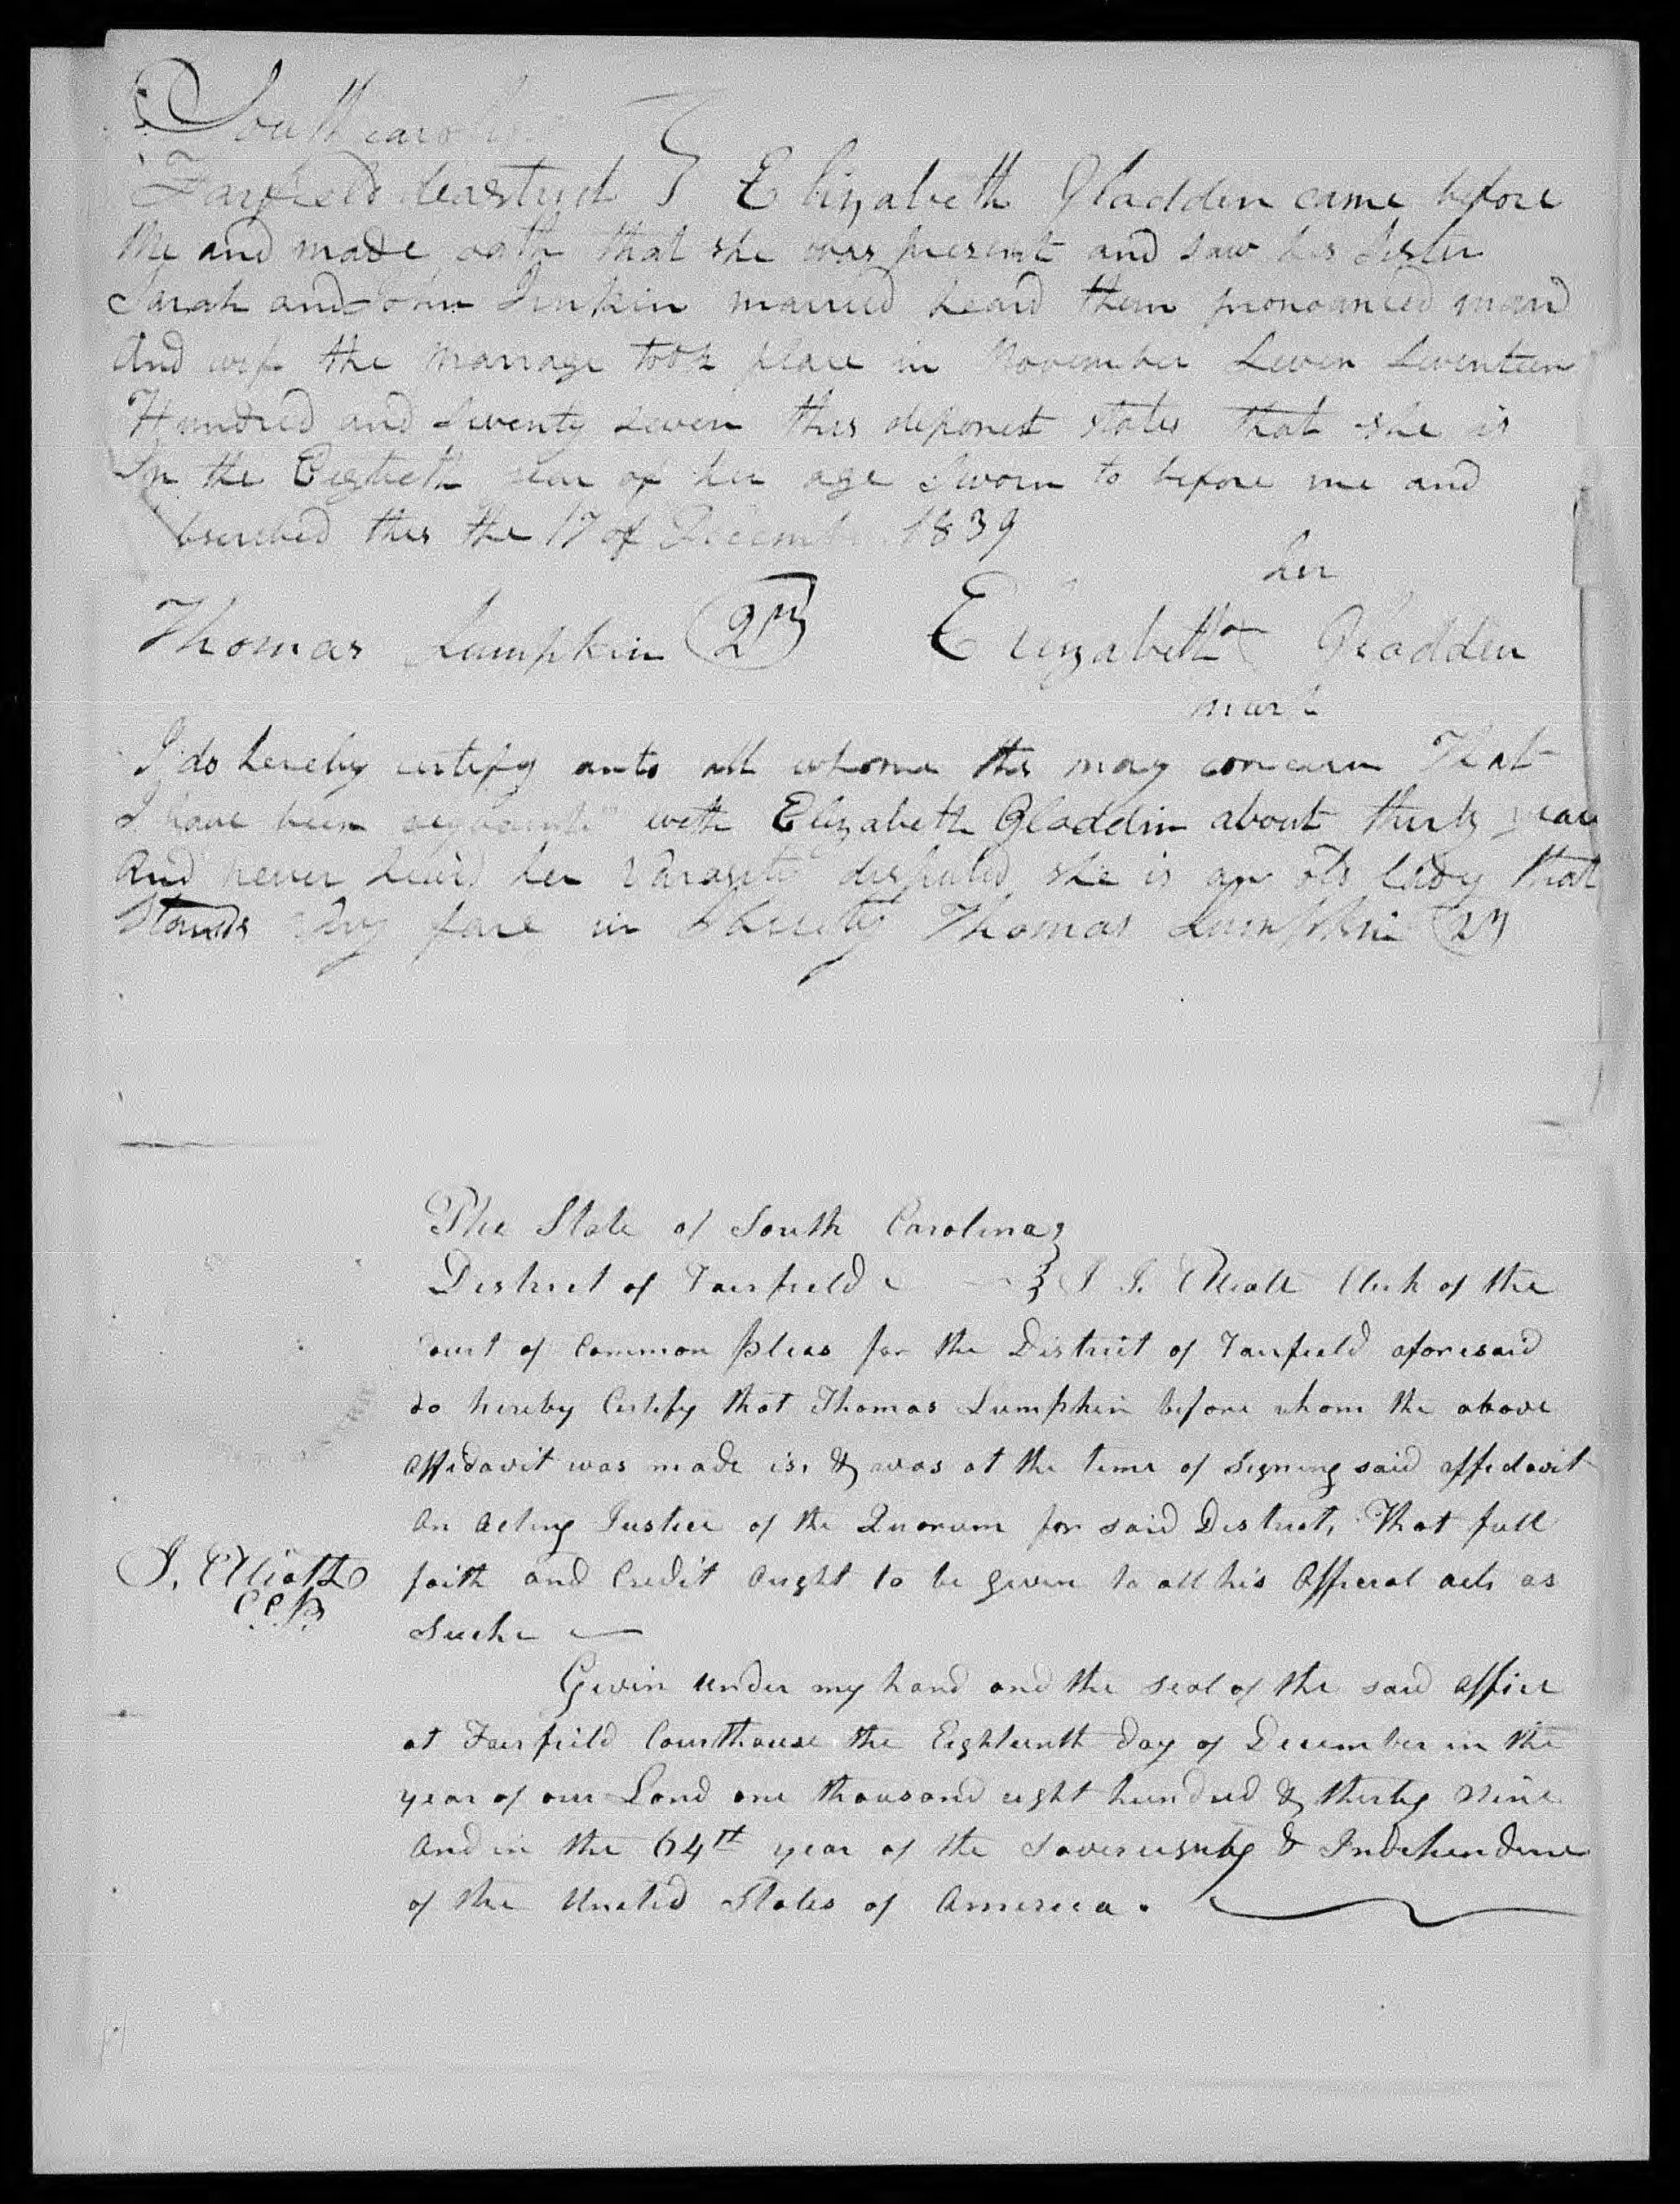 South carolina
Fairfield deastrict } Elizabeth Gladden came before
Me and made oath that she was present and saw her sister
Sarah and John Jinkin married heard them pronounced man
And wife the marrage took place in November Seven Seventeen
Hundred and Seventy Seven this deponent states that she is
In the Eightieth year of her age Sworn to before me and
bscribed this the 17 of December 1839
her
Thomas Lumpkin QM Elizabeth Gladden
mark
I do hereby certify unto all whome this may concarn That
I have been with Elizabeth Gladdin about thirty year
And never heard her Varasity disputed she is an old lady that
Stands very fare in Thomas Lumpkin QM
The State of South Carolina }
District of Fairfield } I J. Elliott Clerk of the
Court of Common pleas for the District of Fairfield aforesaid
do hereby Certify that Thomas Lumpkin before whom the above
affidavit was made is, & was at the time of Signing said affidavit
an acting Justice of the Quorum for said District, That full
J. Elliott faith and Credit ought to be given to all his Official acts as
C.C.P. Such
Given under my hand and the seal of the said office
at Fairfield Courthouse the Eighteenth day of December in the
year of our Lord one thousand eight hundred & thirty nine
And in the 64th year of the Sovereignty & Independence
of the United States of America.